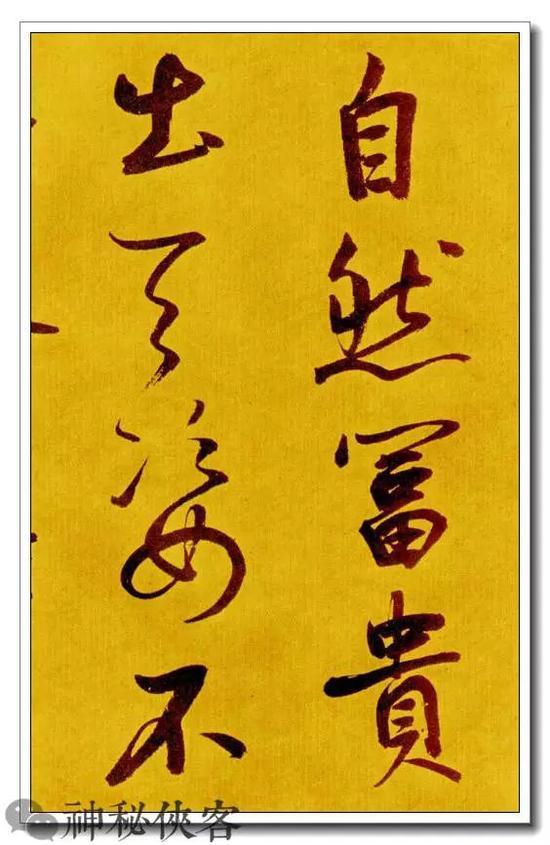 自然冨貴
出天姿不
神秘俠客